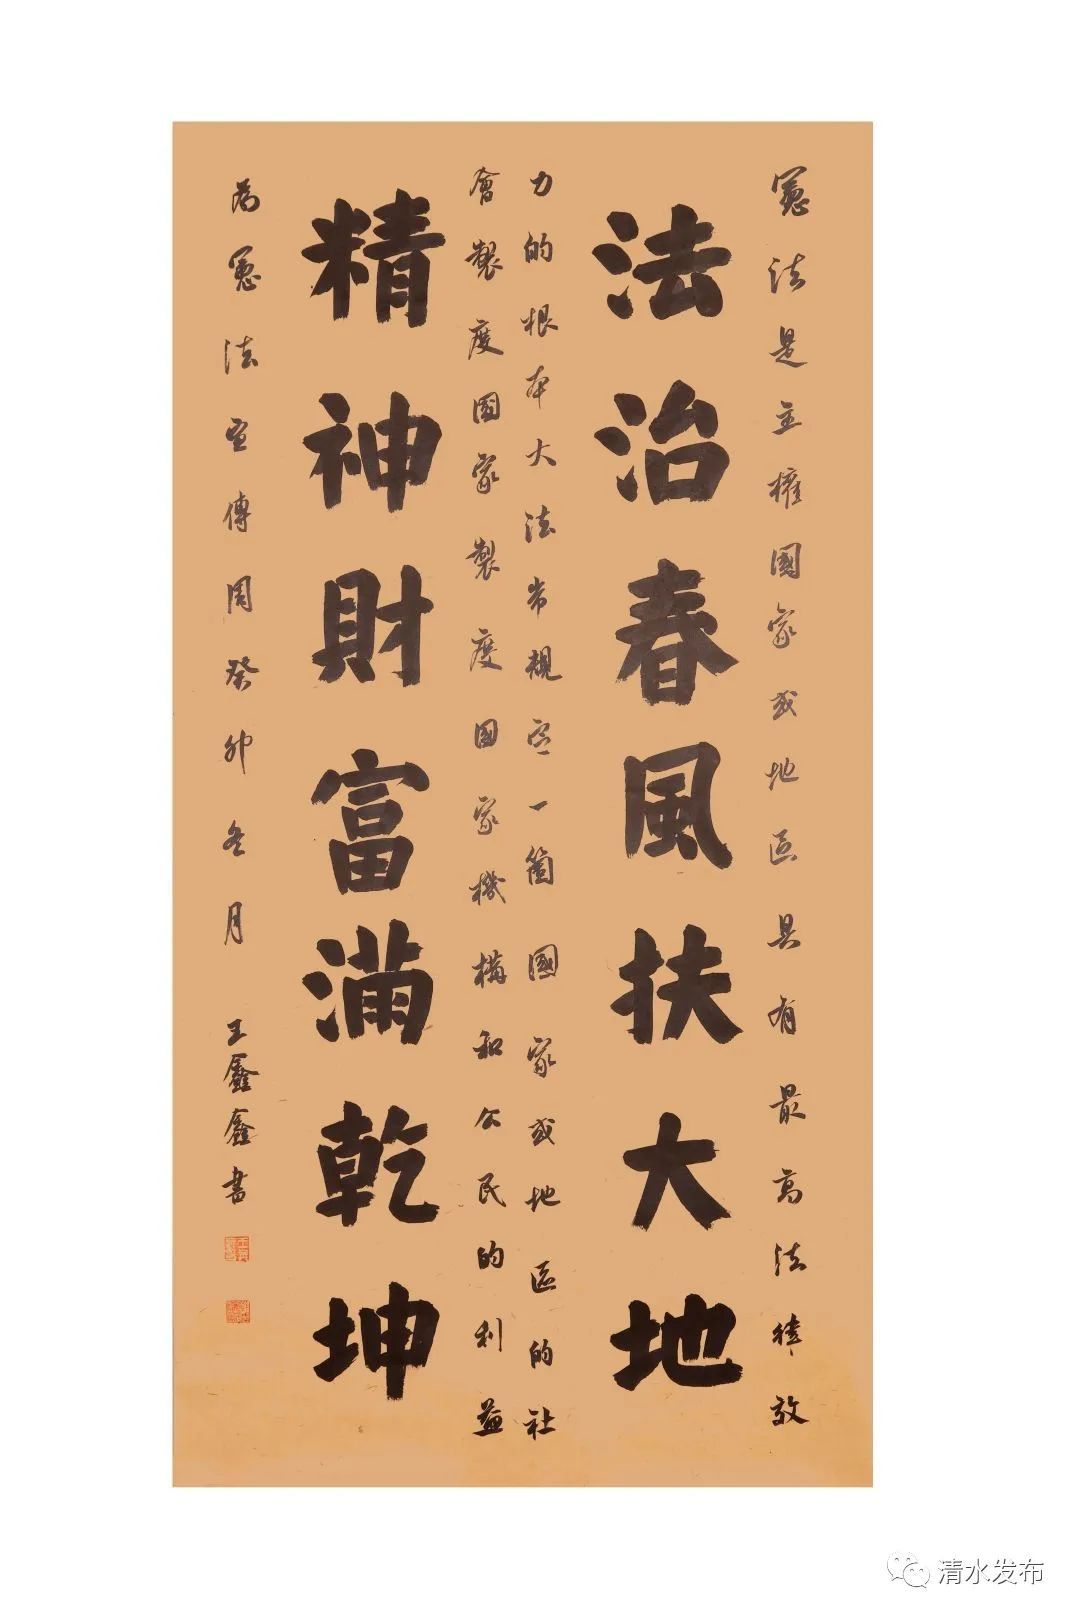 憲法是主權國家或地區具有最高法律效
法治春風扶大地
力的根本大法常規定一箇國家或地區的社
會製度國家製度國家機構和公民的利益
精神財富滿乾坤
為憲法宣傳周癸卯冬月 王鑫鑫書
清水发布